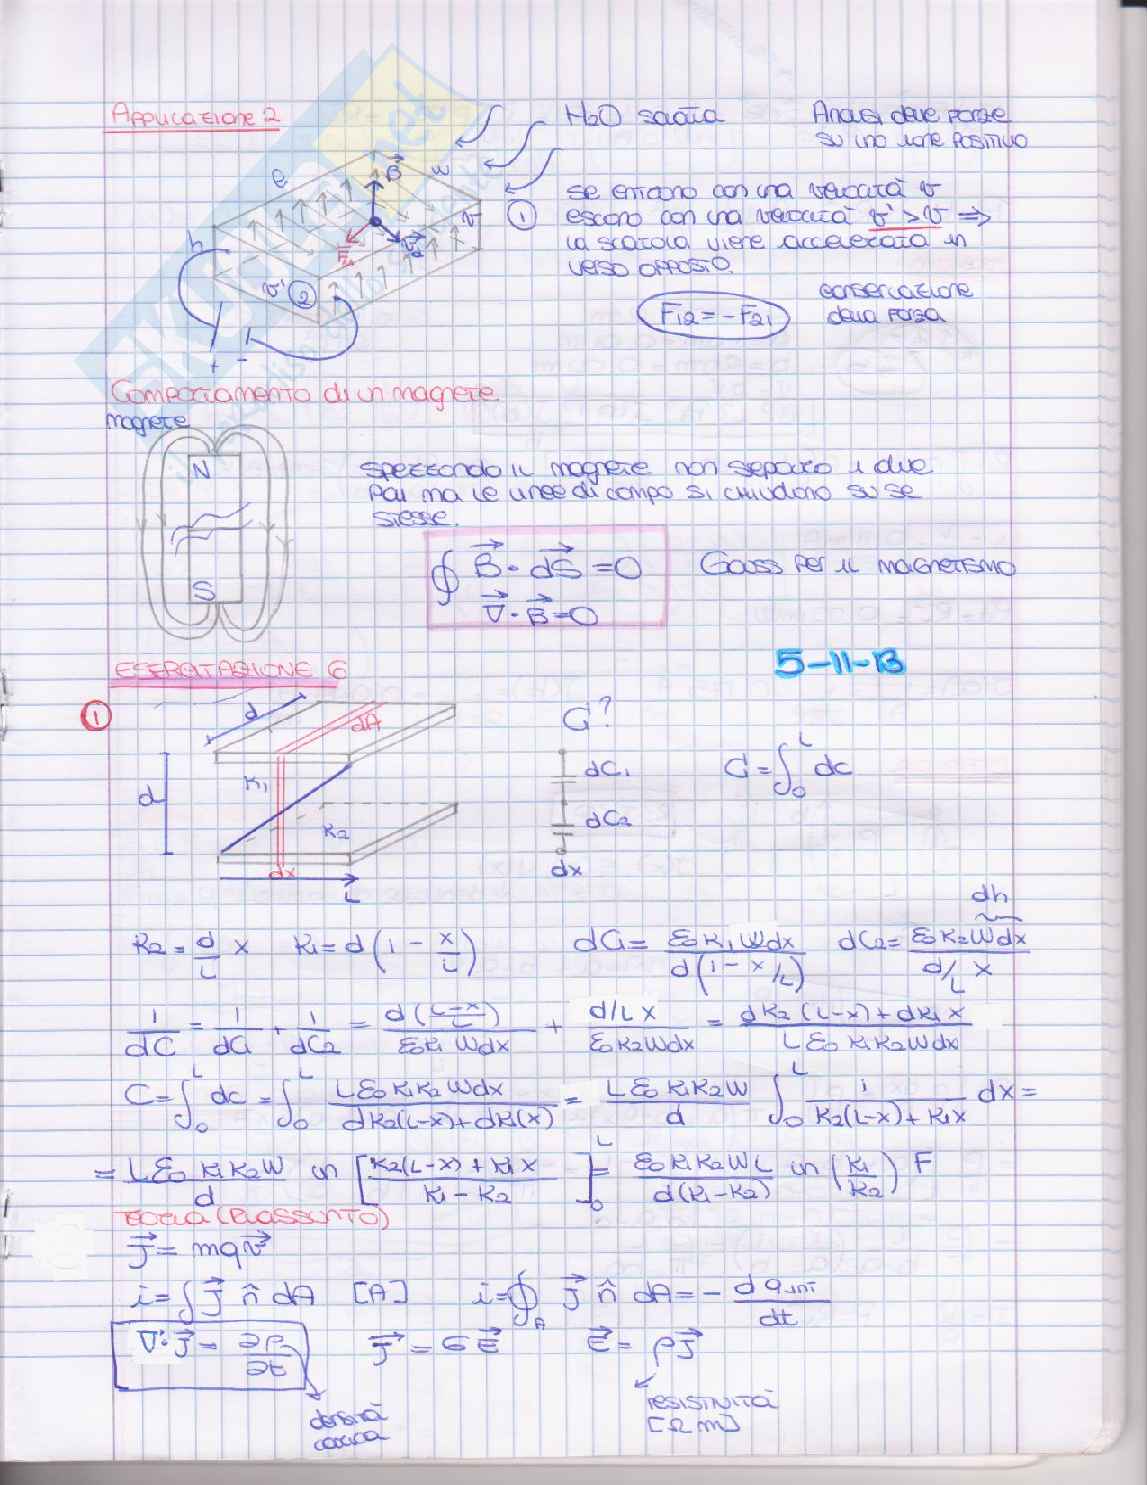 Applicazione 2
H2O salata
Analisi delle forze
su uno ione positivo
l
B
w
v
h
v' ②
+ -
①
se entrano con una velocità v
escono con una velocità v' > v ⇒
la scatola viene accelerata in
verso opposto.
F12 = -F21
conservazione
della forza
Comportamento di un magnete
magnete
N
S
spezzando il magnete non separo i due
poli ma le linee di campo si chiudono su se
stesse.
∮ B⃗ · dS⃗ = 0
∇⃗ · B⃗ = 0
Gauss per il magnetismo
ESERCITAZIONE 6
5-11-13
①
d
dA
K1
d
K2
dx
L
C?
dC1
dC2
dx
C = ∫₀ᴸ dC
K2 = d/L x K1 = d(1 - x/L) dC1 = ε0 K1 W dx / d(1 - x/L) dC2 = ε0 K2 W dx / d/L x
dh
1/dC = 1/dC1 + 1/dC2 = d((L-x)/L) / ε0 K1 W dx + d/L x / ε0 K2 W dx = dK2(L-x) + dK1 x / L ε0 K1 K2 W dx
C = ∫₀ᴸ dC = ∫₀ᴸ L ε0 K1 K2 W dx / dK2(L-x) + dK1(x) = L ε0 K1 K2 W / d ∫₀ᴸ 1 / K2(L-x) + K1 x dx =
= L ε0 K1 K2 W / d ln [K2(L-x) + K1 x / K1 - K2]₀ᴸ = ε0 K1 K2 W L / d(K1 - K2) ln (K1/K2) F
TEORIA (RIASSUNTO)
J⃗ = mqv⃗
i = ∫ J⃗ n̂ dA [A] i = ∮A J⃗ n̂ dA = - dqint/dt
∇·J⃗ = ∂ρ/∂t J⃗ = σE⃗ E⃗ = ρJ⃗
densità
carica
resistività
[Ω m]